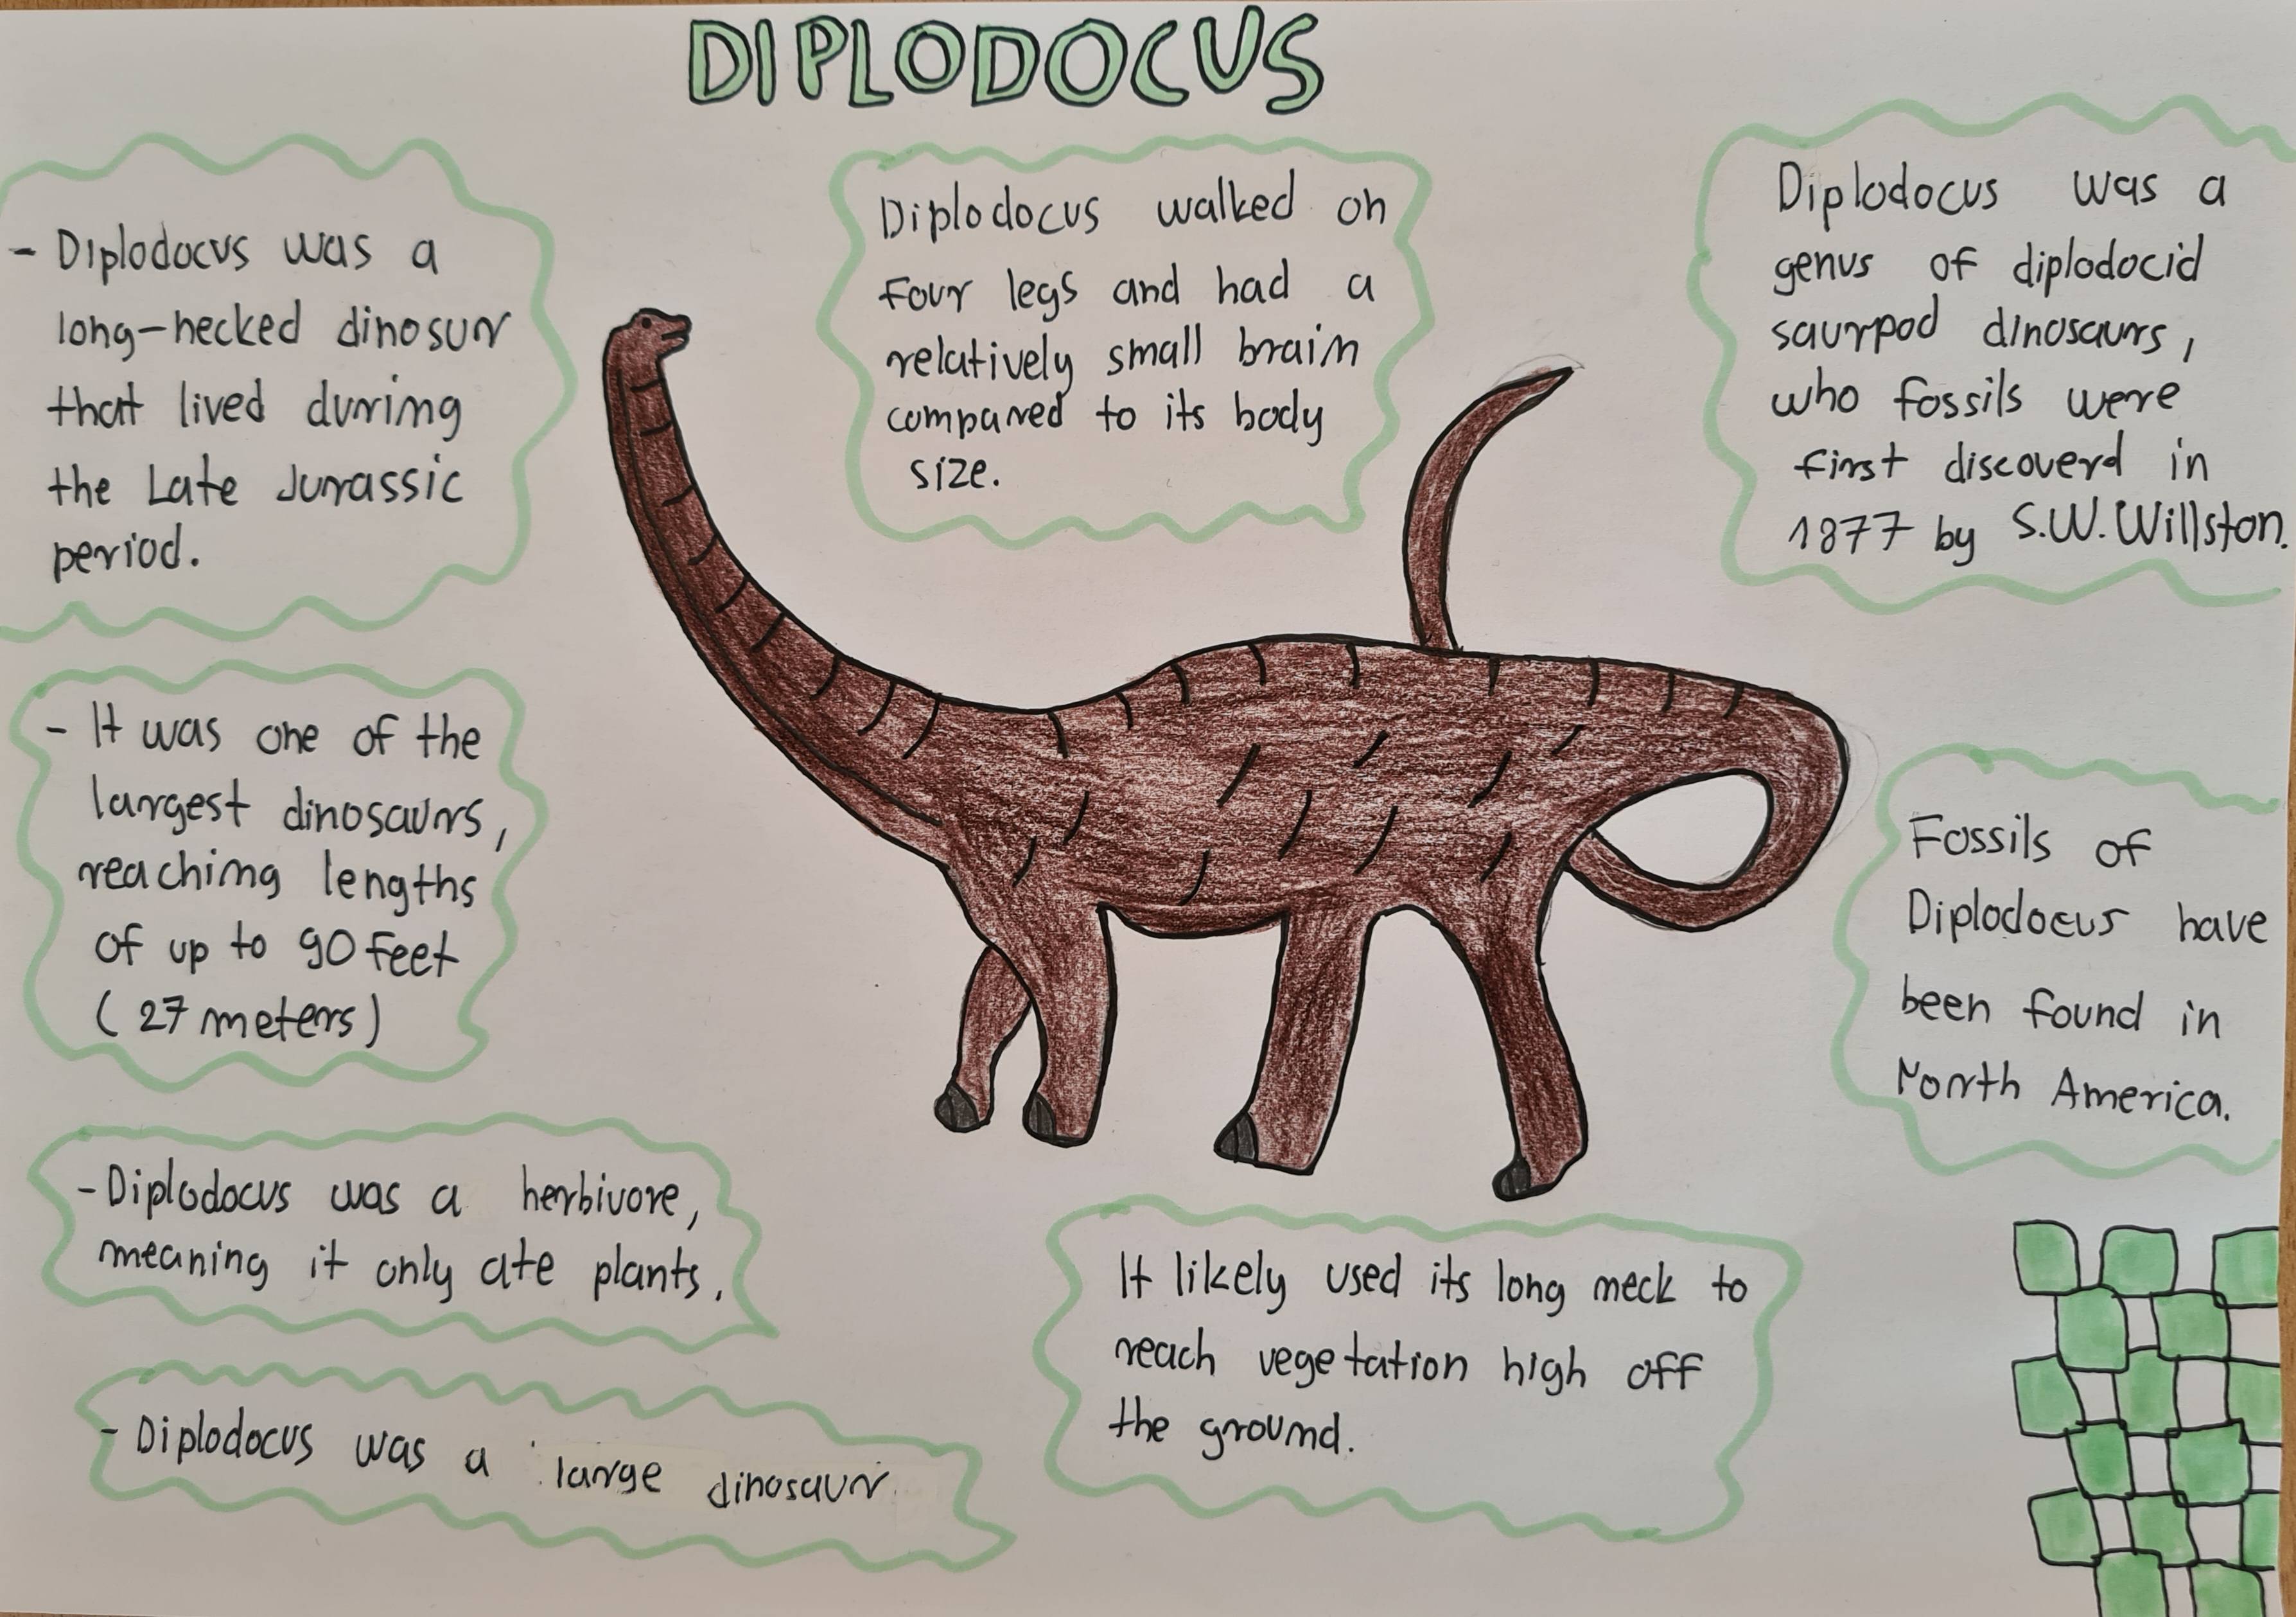 DIPLODOCUS
- Diplodocus was a
long-necked dinosur
that lived during
the Late Jurassic
period.
- It was one of the
largest dinosaurs,
reaching lengths
of up to 90 feet
(27 meters)
- Diplodocus was a herbivore,
meaning it only ate plants.
- Diplodocus was a large dinosaur
Diplodocus walked on
four legs and had a
relatively small brain
compared to its body
size.
It likely used its long neck to
reach vegetation high off
the ground.
Diplodocus was a
genus of diplodocid
saurpod dinosaurs,
who fossils were
first discoverd in
1877 by S.W. Willston.
Fossils of
Diplodocus have
been found in
North America.